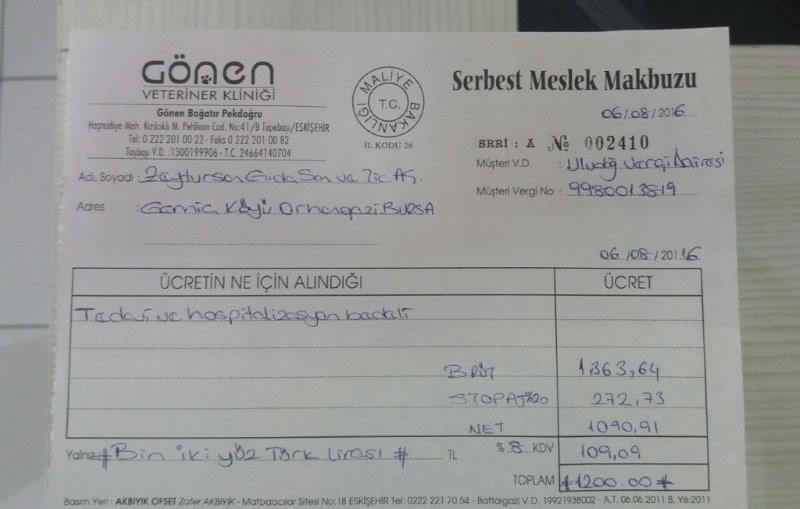 GÖNEN
VETERİNER KLİNİĞİ
Gönen Bağatır Pekdoğru
Hoşnudiye Mah. Kızılcıklı M. Pehlivan Cad. No:41/B Tepebaşı/ESKİŞEHİR
Tel: 0 222 201 00 22 - Faks 0 222 201 00 82
Taşbaşı V.D.: 1300199906 - T.C. 24664140704
MALİYE BAKANLIĞI
T.C.
İL KODU 26
Serbest Meslek Makbuzu
06/08/2016
SERİ : A No 002410
Müşteri V.D. : Uludğ Vergi Dairesi
Müşteri Vergi No : 9980013819
Adı, Soyadı : Zeytursan Gıda San ve Tic Aş.
Adres : Gemic Köyü Orhangazi BURSA
06/08/2016
ÜCRETİN NE İÇİN ALINDIĞI ÜCRET
Tedavi ve hospitalizasyon bedeli
BRÜT 1363,64
STOPAJ %20 272,73
NET 1090,91
Yalnız # Bin iki yüz Türk Lirası # TL % 8 KDV 109,09
TOPLAM #1200.00#
Basım Yeri : AKBIYIK OFSET Zafer AKBIYIK - Matbaacılar Sitesi No:18 ESKİŞEHİR Tel: 0222 221 70 54 - Battalgazi V.D. 19921938002 - A.T. 06.06 2011 B. Yılı:2011